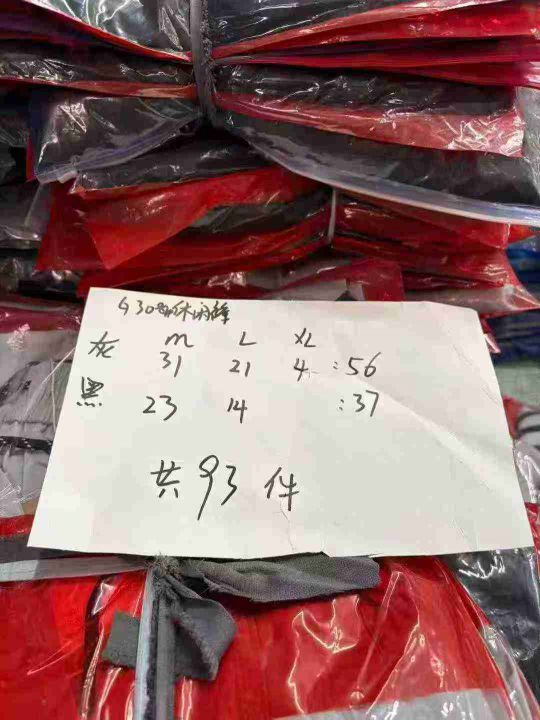 休闲裤
M L XL
灰 31 21 4 :56
黑 23 14 :37
共93件